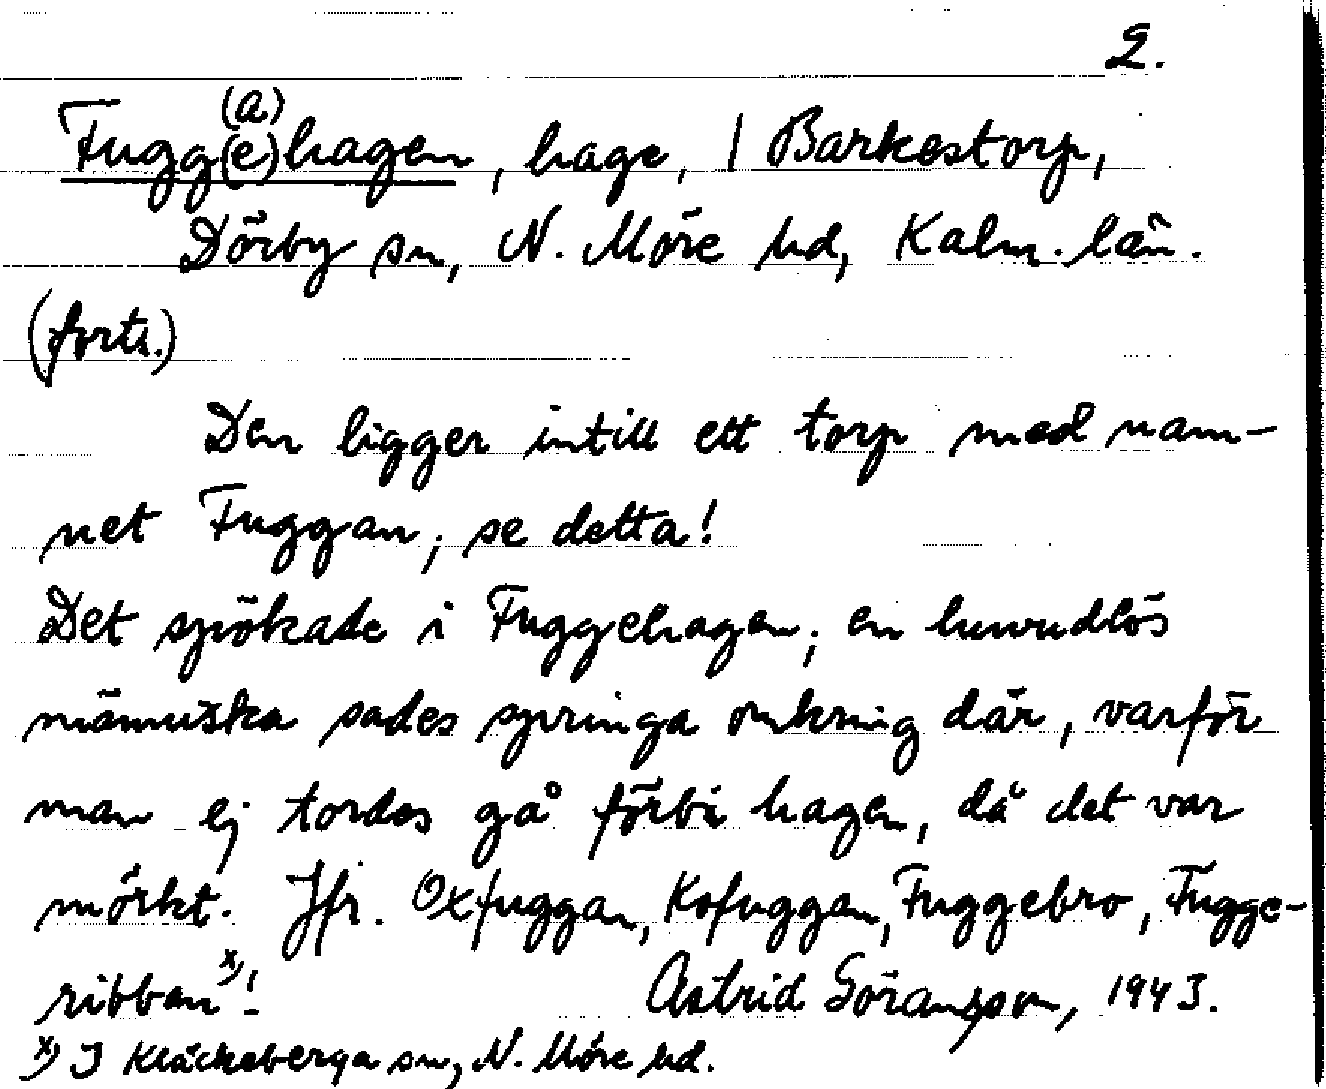 2.
(a)
Fugg(e)hagen, hage, | Barkestorp,
Dörby sn, N. Möre hd, Kalm. län.
(forts.)
Den ligger intill ett torp med nam-
net Fuggan; se detta!
Det spökade i Fuggehagen; en huvudlös
människa sades springa omkring där, varför
man ej tordes gå förbi hagen, då det var
mörkt. Jfr. Oxfuggan, Kofuggan, Fuggebro, Fugge-
ribban x)!
Astrid Göransson, 1943.
x) I Kläckeberga sn, N. Möre hd.